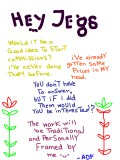 Hey Jegs
Would it be a
good idea to start
commissions?
I've never done
that before.
I've already
gotten some
Prices in My
head.
You don't have
To answer,
but if I did
Them would
You be interested?
The work will
be Traditional
and Personally
Framed by
me
- ADF